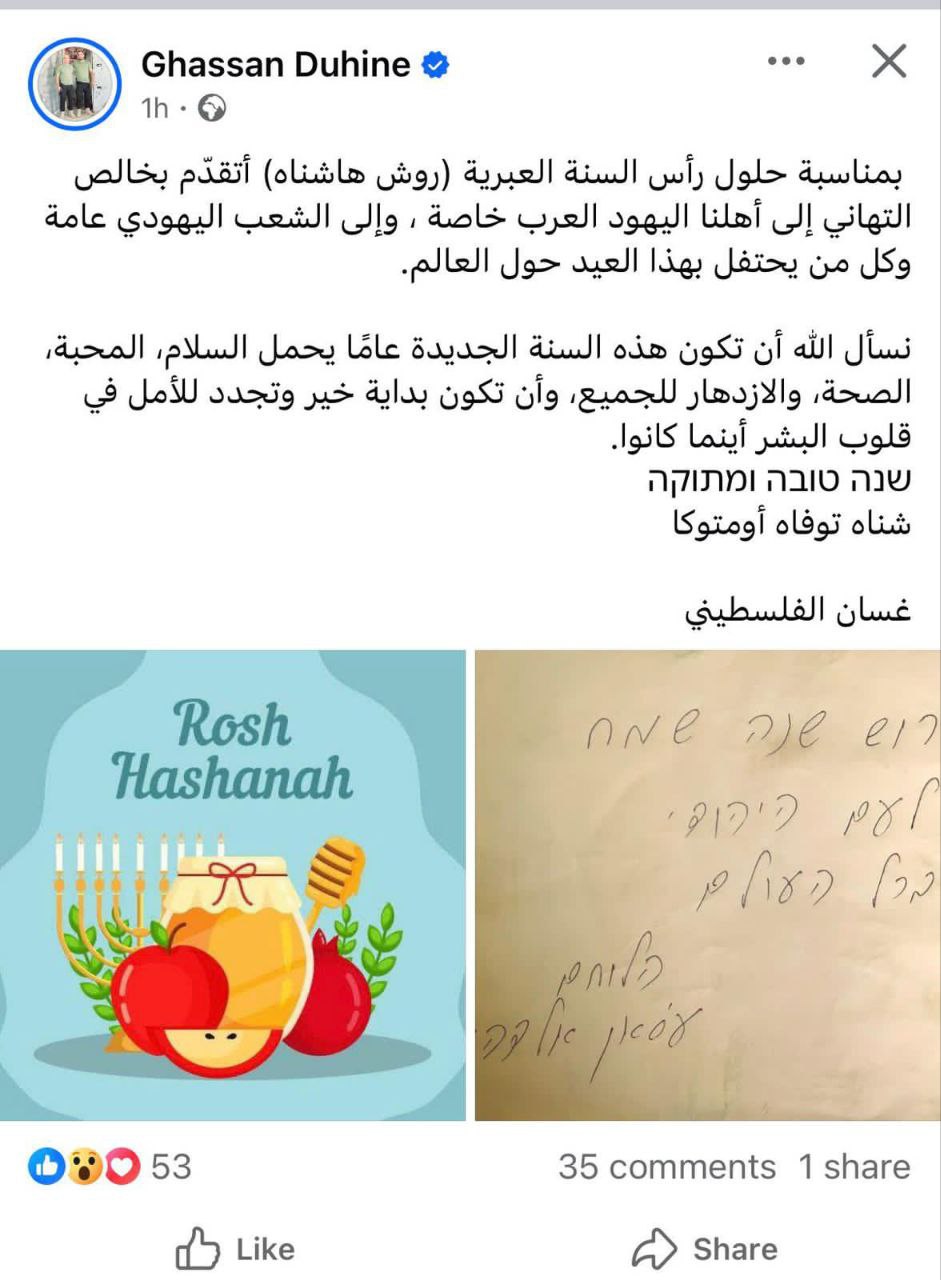 Ghassan Duhine
1h
بمناسبة حلول رأس السنة العبرية (روش هاشناه) أتقدّم بخالص
التهاني إلى أهلنا اليهود العرب خاصة ، وإلى الشعب اليهودي عامة
وكل من يحتفل بهذا العيد حول العالم.
نسأل الله أن تكون هذه السنة الجديدة عامًا يحمل السلام، المحبة،
الصحة، والازدهار للجميع، وأن تكون بداية خير وتجدد للأمل في
قلوب البشر أينما كانوا.
שנה טובה ומתוקה
شناه توفاه أومتوكا
غسان الفلسطيني
Rosh
Hashanah
רוש שנה שמח
לעם היהודי
בכל העולם
הלוחם
53
35 comments 1 share
Like
Share